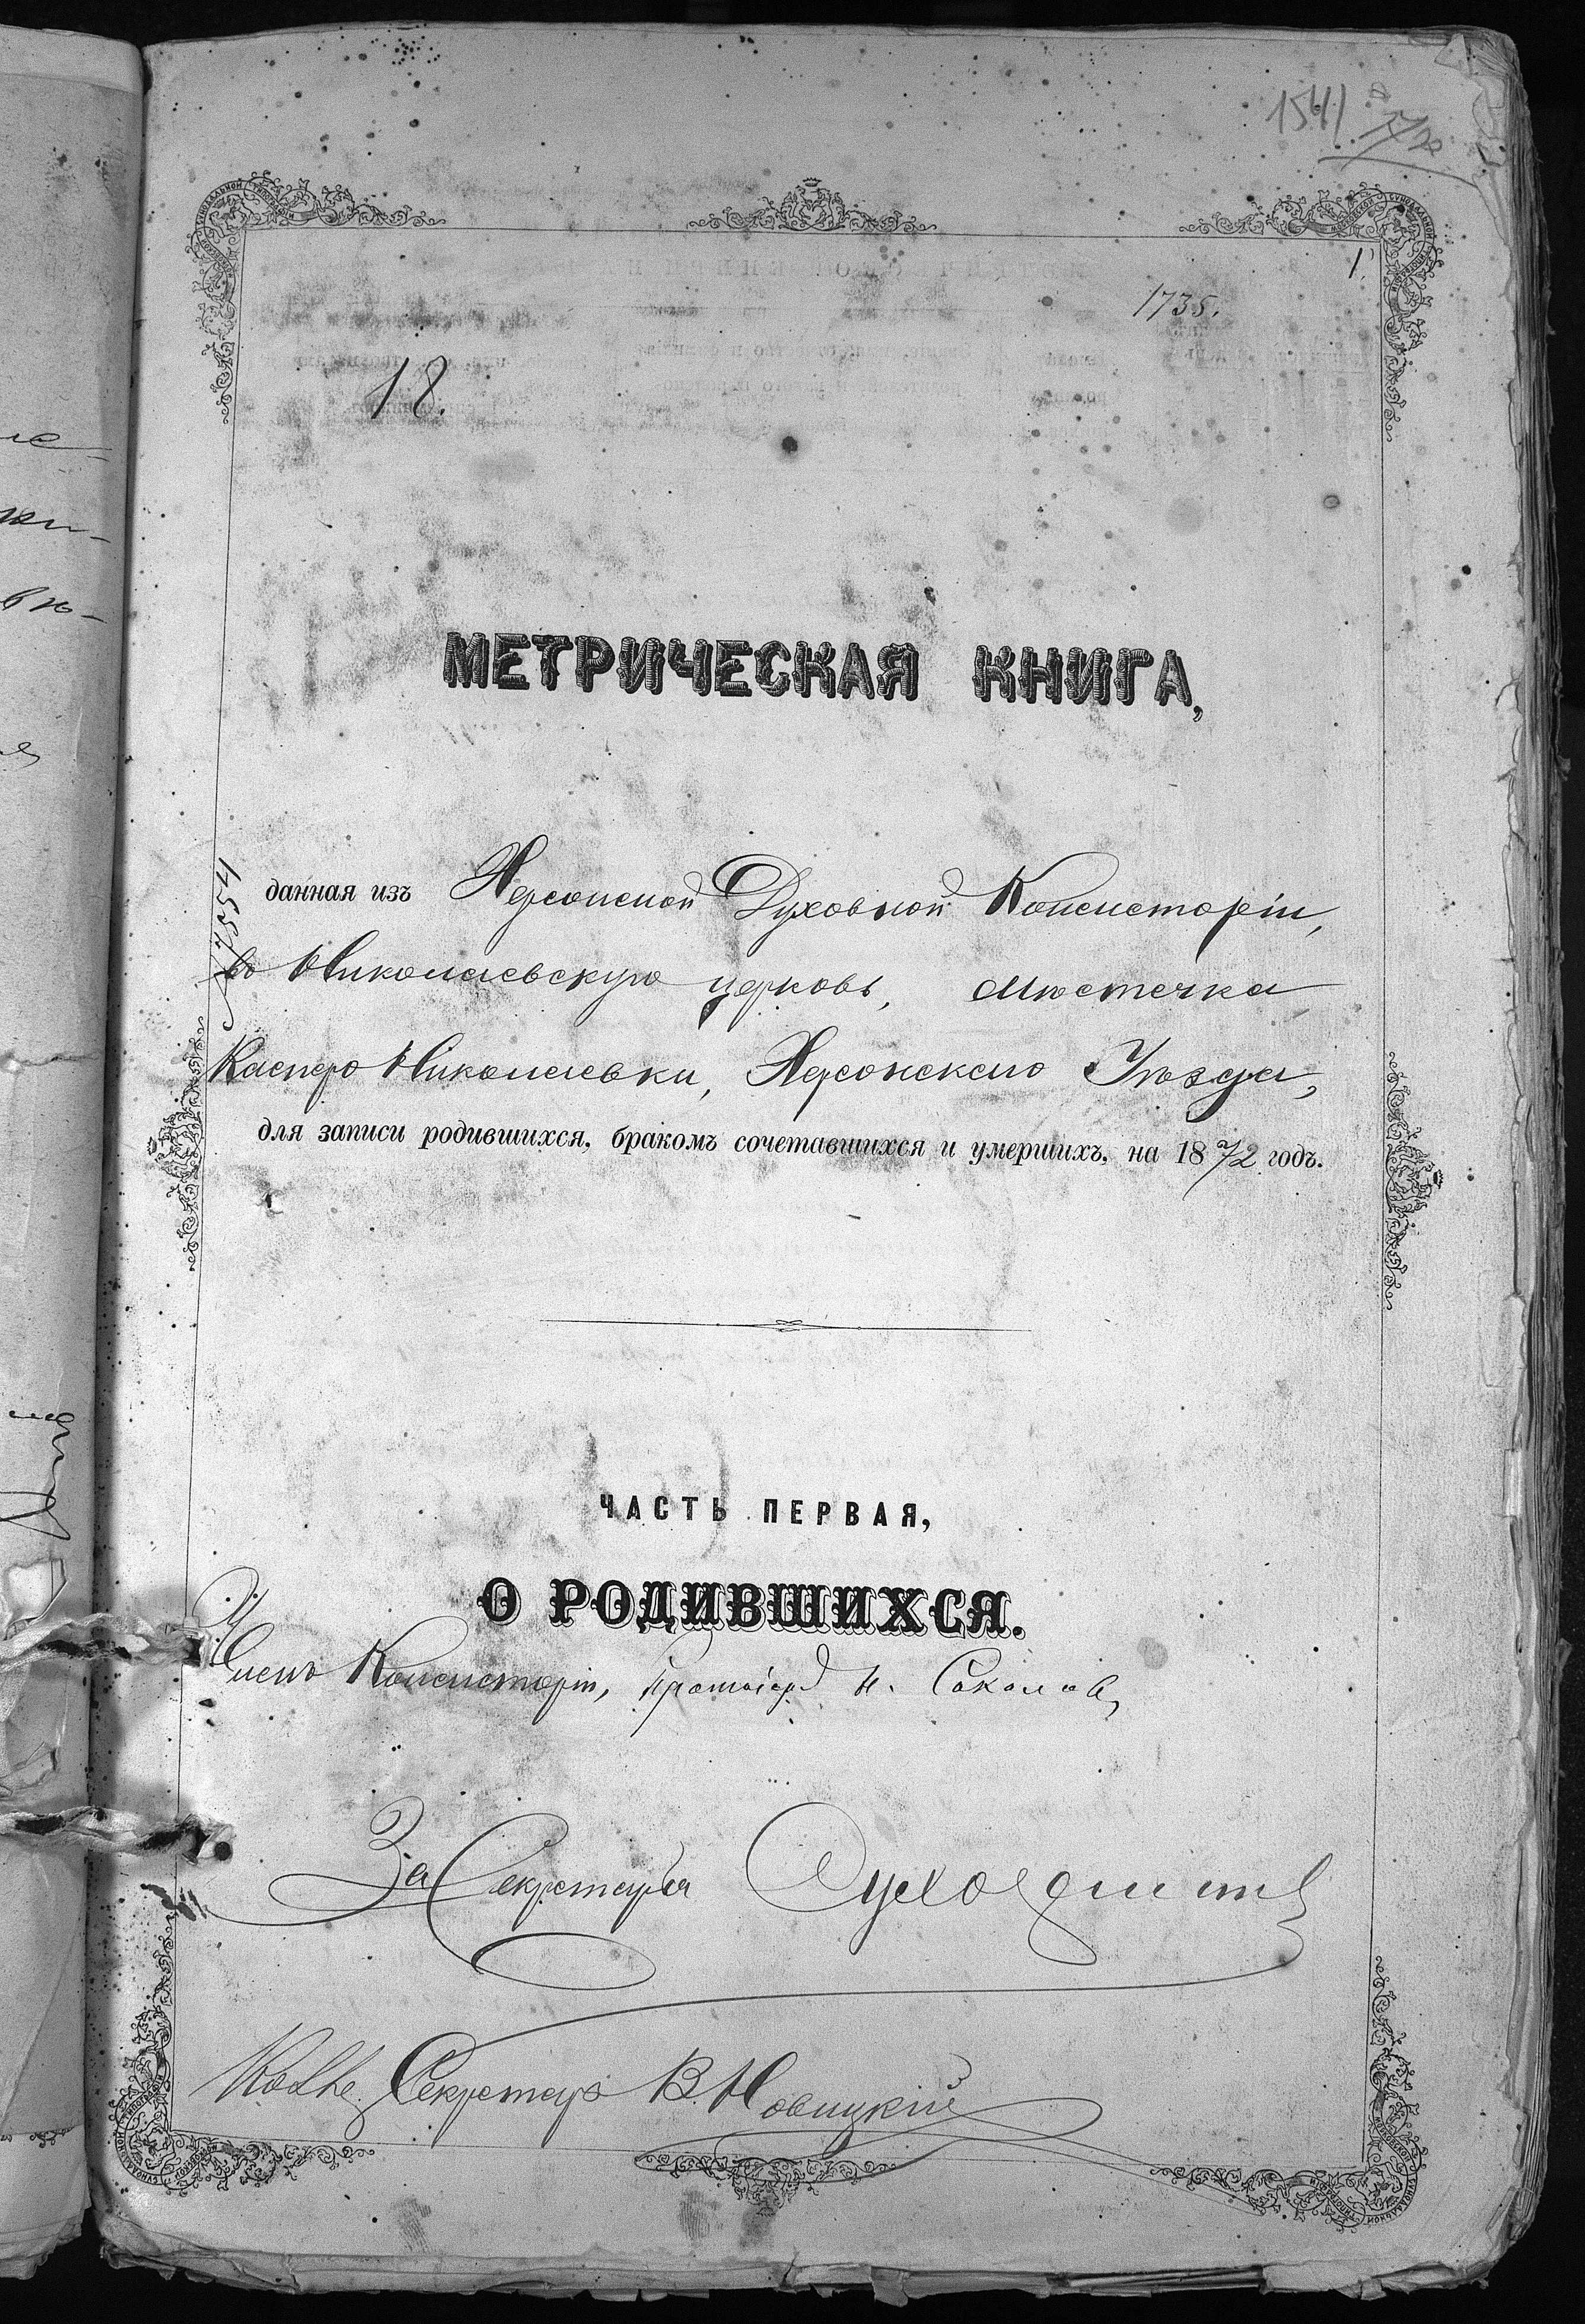 1541
1735.
1.
18.
МЕТРИЧЕСКАЯ КНИГА,
данная изъ Херсонской Духовной Консисторіи,
во Николаевскую церковь, мѣстечка
Касперо Николаевки, Херсонскаго Уѣзда,
для записи родившихся, бракомъ сочетавшихся и умершихъ, на 1872 годъ.
ЧАСТЬ ПЕРВАЯ,
О РОДИВШИХСЯ.
Членъ Консисторіи, Н. Соколовъ
За Секретаря
Секретарь В. Новицкій